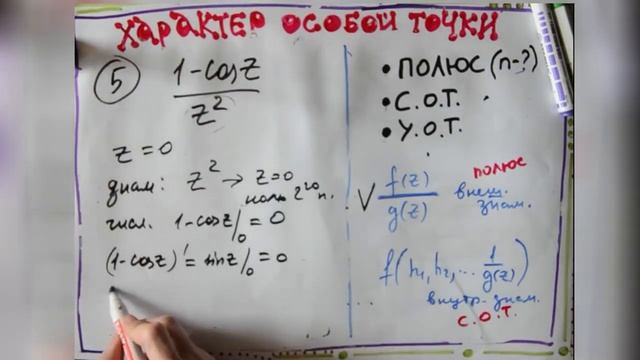 ХАРАКТЕР ОСОБОЙ ТОЧКИ
5 1-cosz
z²
z=0
знам: z² → z=0
ноль 2го п.
числ. 1-cosz/₀ = 0
(1-cosz)' = sinz/₀ = 0
• ПОЛЮС (n-?)
• С.О.Т.
• У.О.Т.
полюс
V f(z) внеш.
g(z) знам.
f(h₁, h₂, ... 1/g(z))
внутр. знам.
С.О.Т.